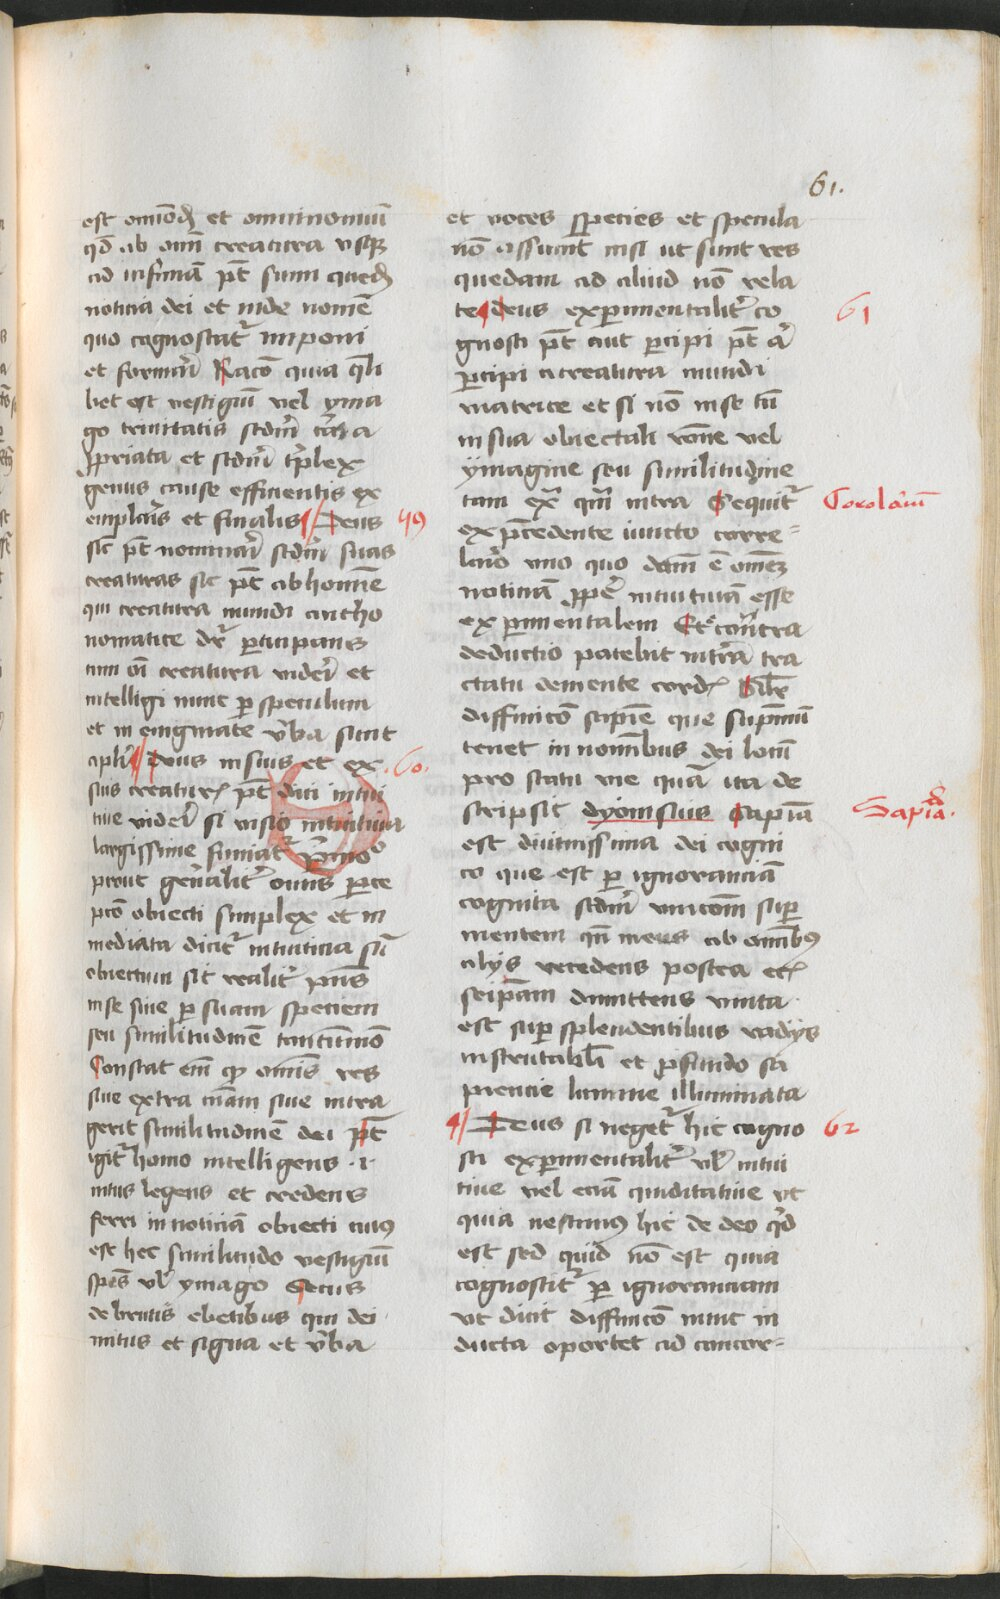 61.
est omīodꝭ et omninomiuɜ
qd̄ ab omī creatura usqꝫ
ad infimā pt̄ sumi quedꝭ
noticia dei et inde nomē
quo cognoscat᷑ imponi
et formaɼ̄i Racō quia qͣli
bet est vestigiū vel yma
go trinitatis scdm̄ tͥa
ꝓpriata et scdm̄ tͥplex
genus cause efficientis ex
emplar̄is et finalis ¶ Deus 59
sic pt̄ nominar̄i scdm̄ suas
creaturas sic pt̄ ab homīe
qui creatura mundi antho
nomatice dr̄ participans
cum oī creatura vider̄i et
intelligi nunc ꝑ speculum
et in enigmate v̄ba sunt
apl̄i ¶ Deus in suis et ex .60.
suis creaturꝭ pt̄ dici intui
tiue vider̄i si visio intuitiua
largissime sumat᷑ pͥmo
prout gn̄alit᷑ omnis ꝑce
pcō obiecti simplex et in
mediata dicit᷑ intuitiua siͧ
obiectum sit realit᷑ pn̄s
in se siue ꝑ suam speciem
seu similitudinē tantūmō
Constat em̄ ꝙ omīs res
siue extra aīam siue intra
gerit similitudinē dei pt̄
igit᷑ homo intelligens .i.
intus legens et credens
ferri in noticiā obiecti cuiꝰ
est hec similitudo vestigiū
spēs vl̓ ymago Secus
de brutis ebetibus qui dei
nutus et signa et v̄ba
et voces species et specula
nō assumt nisi ut sunt res
quedam ad aliud nō rela
te ¶ Deus experimentalit᷑ co 61
gnosci pt̄ aut ꝑcipi pt̄ a᷑
ꝑcipi a creatura mundi
matrice et si nō in se tn̄
in sua obiectali rōne vel
ymagine seu similitudine
tam ex͛ qͣm intra Sequit᷑ Corolariū
ex p̄cedente iuncto corre-
lario uno quo dcām ē omēꝫ
noticiam ꝓpͥe intuitiuā esse
experimentalem Et cōn̄tra
deductio patebit intra tra
ctatu de mente cordꝭ Nͣ
diffinicō sapīe que supͥmū
tenet in nomībus dei locū
pro statu vie quā ita de
scripsit dyonisius Sapīa Sapīa.
est diuinissima dei cogni
co que est ꝑ ignoranciā
cognita scdm̄ unicōm suꝑ
mentem qn̄ mens ab omībꝰ
alijs recedens postea etꝭ
seipsam dimittens unita
est suꝑ splendentibus radijs
inscrutabl̄i et ꝓfundo sa
piencie lumine illuminata
¶ Deus si neget᷑ hic cogno 62
sci experimentalit᷑ vl̓ intui
tiue vel eciā quiditatiue vt
quia nescimꝰ hic de deo qͥd
est sed quid nō est quia
cognoscit᷑ ꝑ ignoranciam
vt dicit diffinicō nunc in
ducta oportet ad concor-